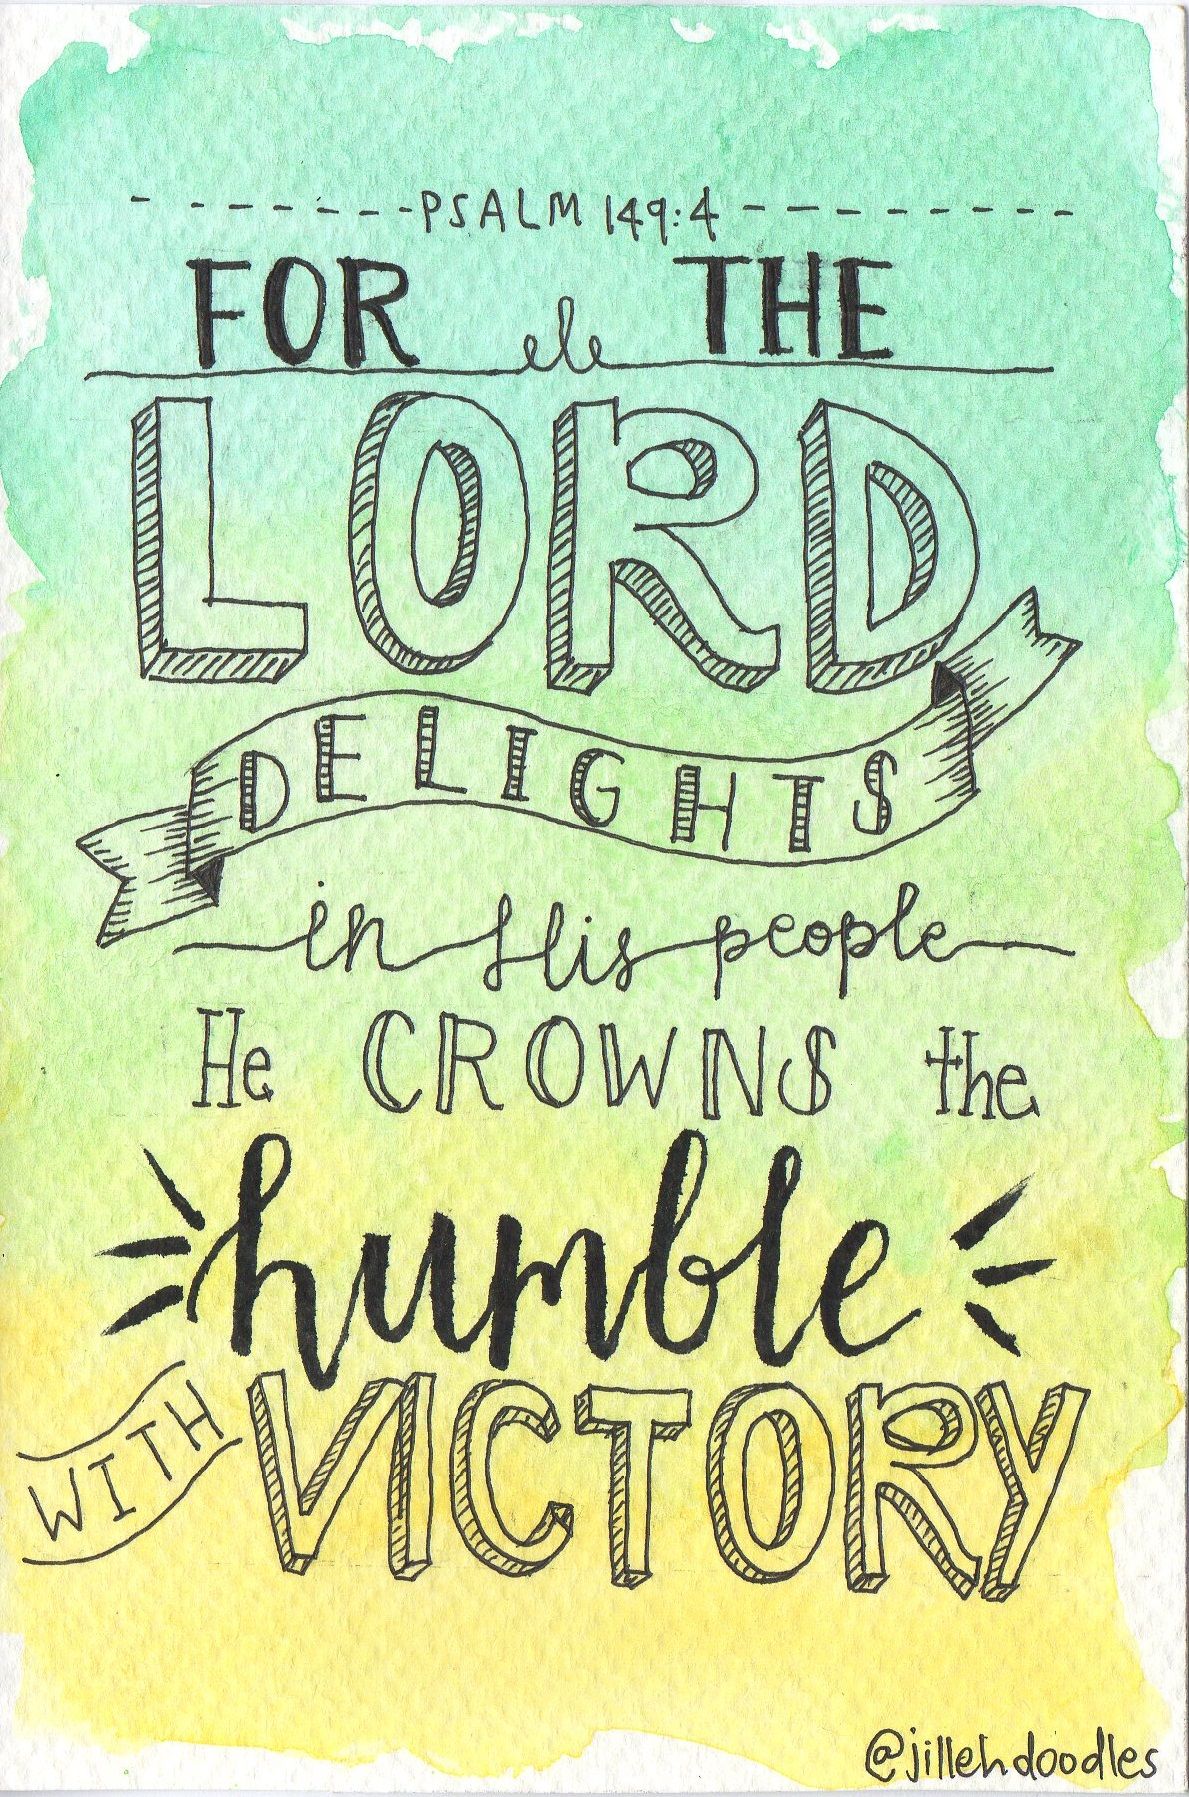 PSALM 149:4
FOR THE
LORD
DELIGHTS
in His people
He CROWNS the
humble
WITH VICTORY
@jillehdoodles